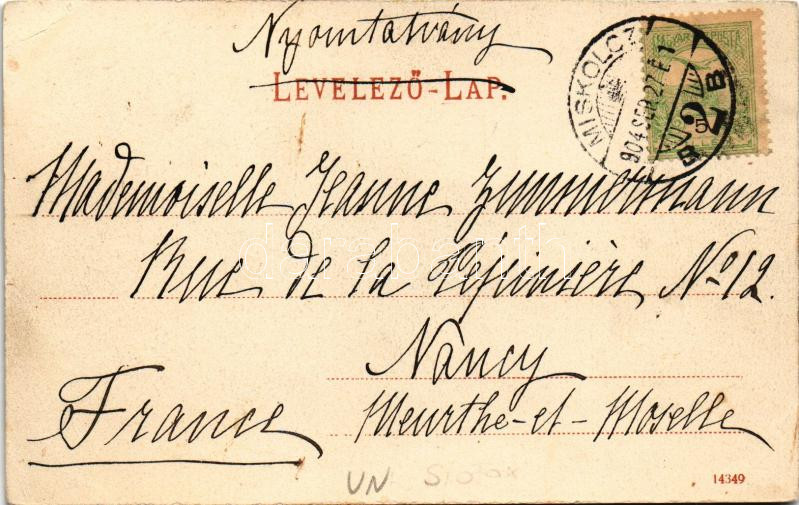 Nyomtatvány
LEVELEZŐ-LAP.
MISKOLCZ
904 SEP 27 É 1
2 B
MAGYAR KIR. POSTA
5
Mademoiselle Jeanne Zimmermann
Rue de la Pépinière No 12.
Nancy
France
Meurthe-et-Moselle
darabanth
VN
14349